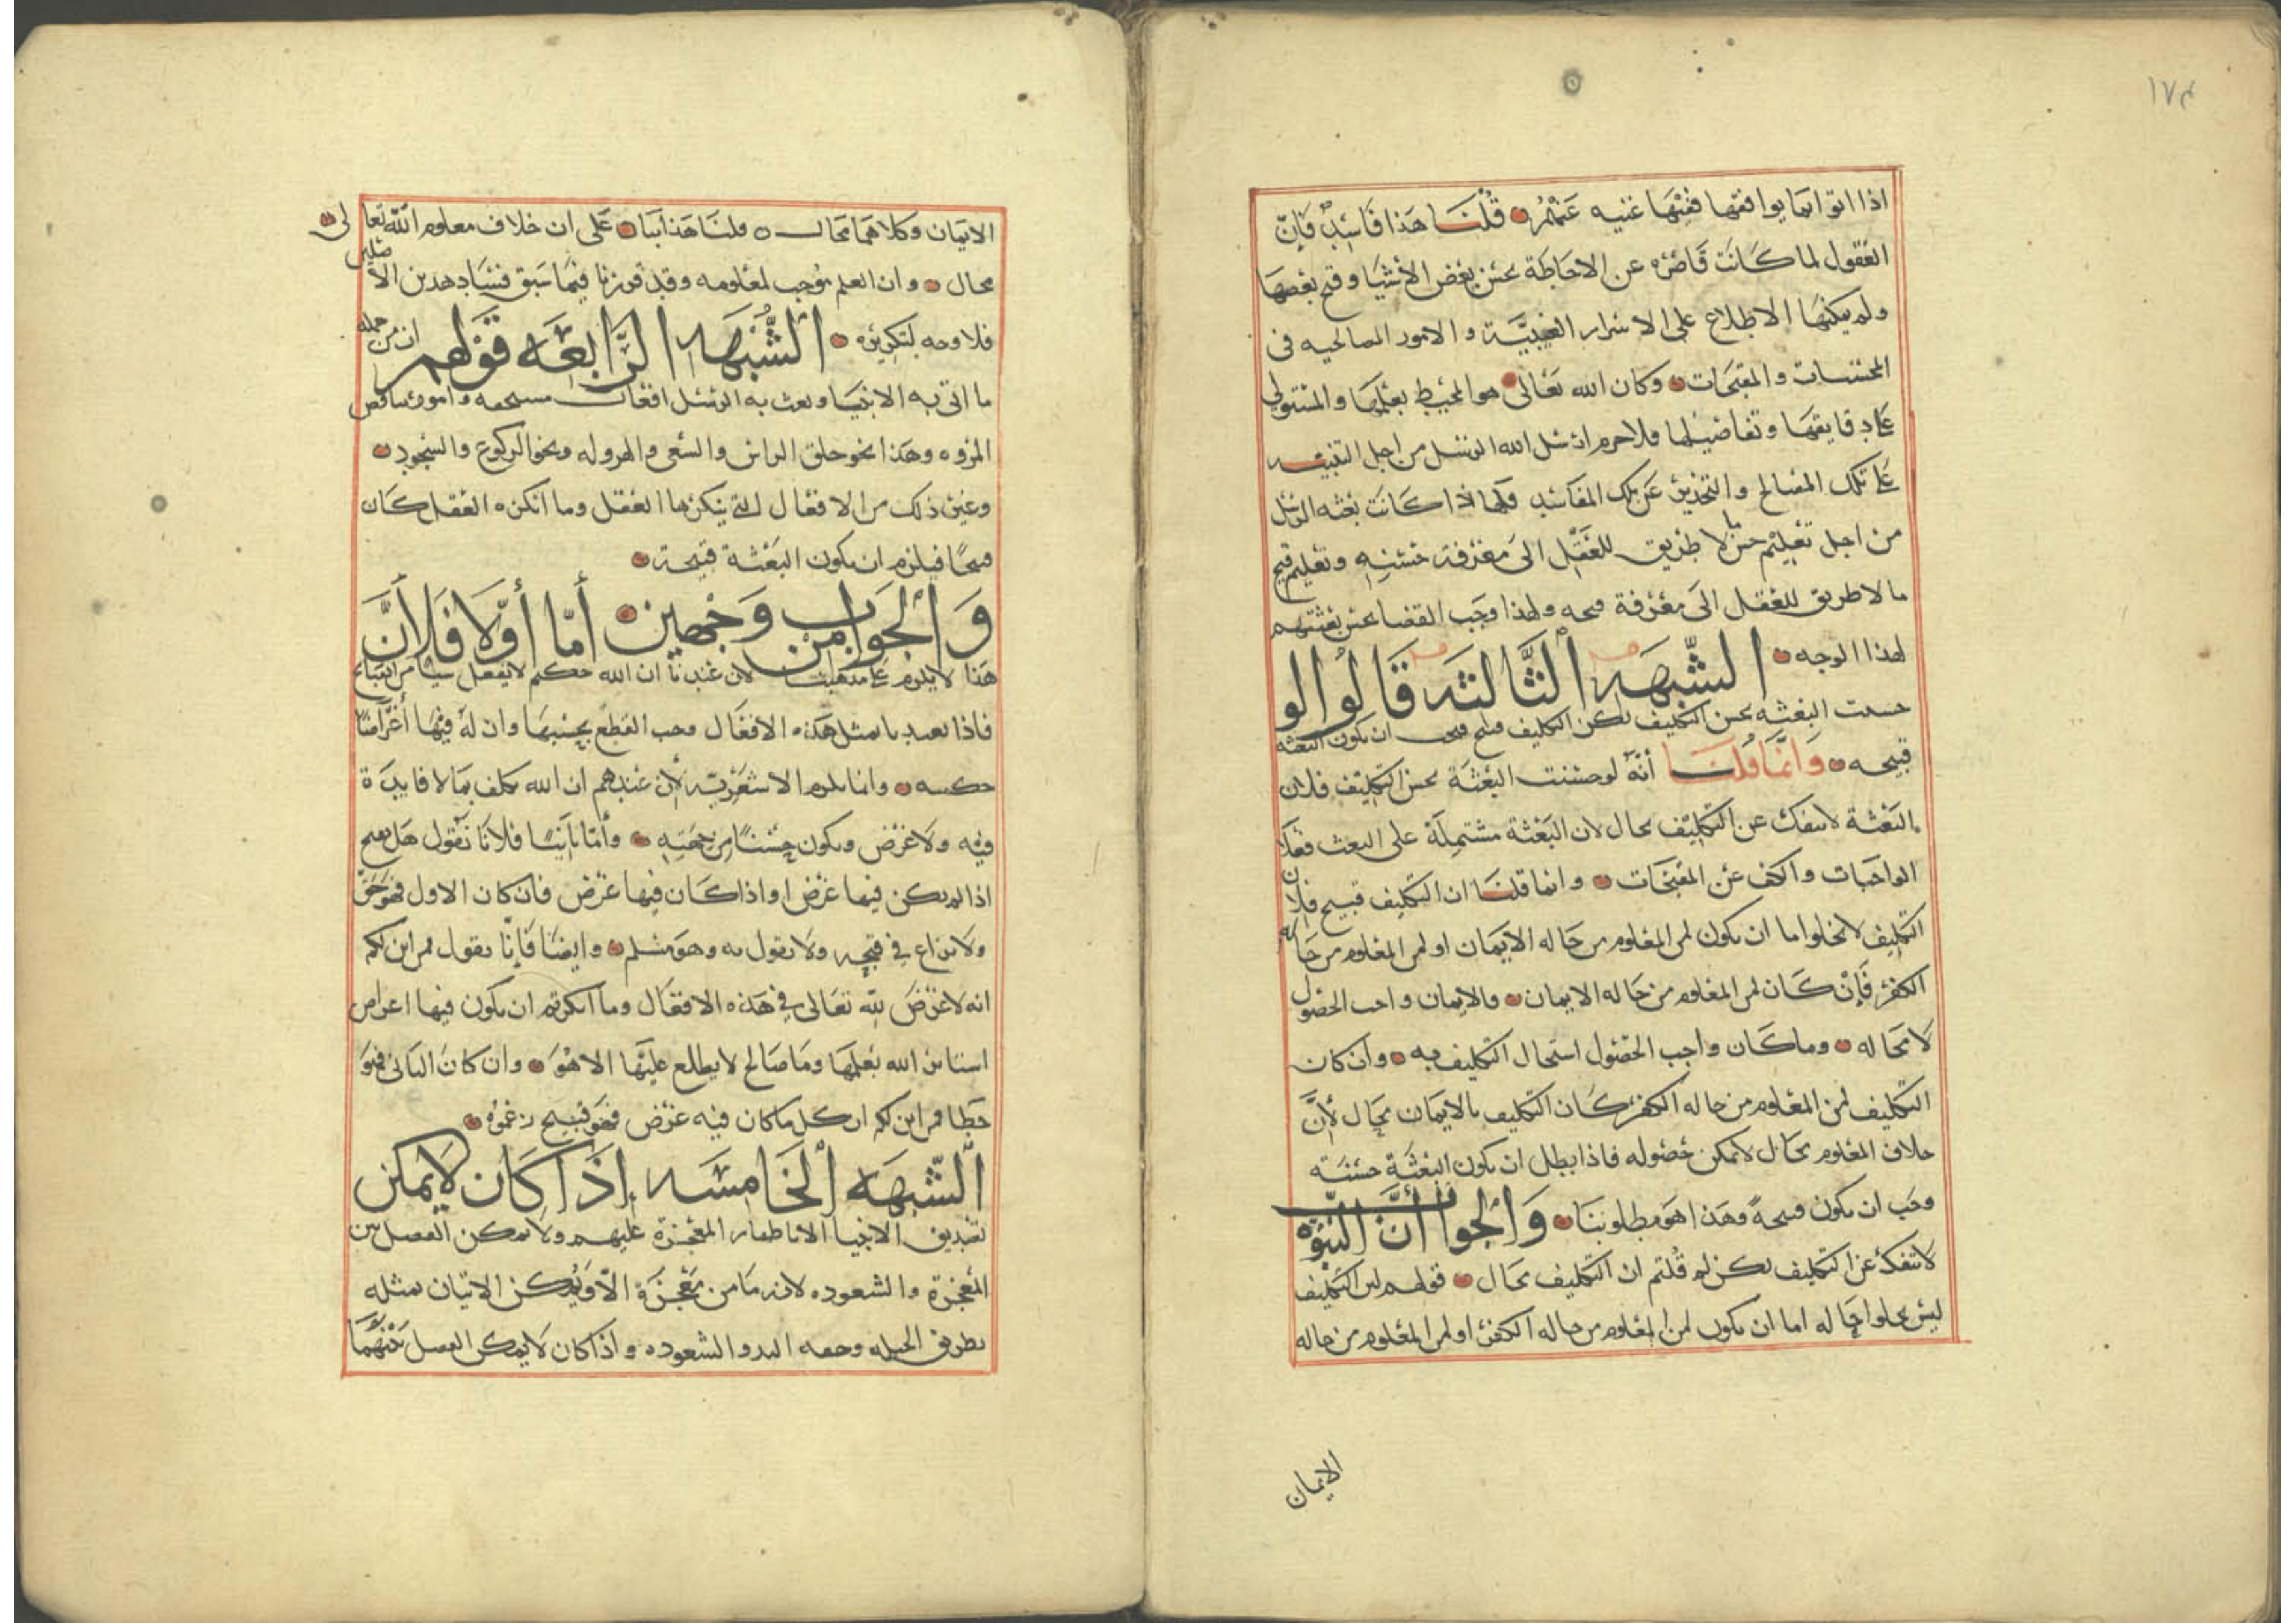 ١٧٤
اذا اتوا بما يوافقها ففيها غنيه عنهم قلنا هذا فاسد فان
العقول لما كانت قاصره عن الاحاطة بحسن بعض الاشيا وقبح بعضها
ولم يمكنها الاطلاع على الاسرار الغيبيه والامور المصالحيه فى
المحسنات والمقبحات وكان الله تعالى هو المحيط بعلمها والمستولى
على دقايقها وتفاصيلها فلاجرم ارسل الله الرسل من اجل التنبيه
على تلك المصالح والتحذير عن تلك المفاسد فلهذا كانت بعثه الرسل
من اجل تعليم حسن ما لا طريق للعقل الى معرفة حسنه وتعليم قبح
ما لا طريق للعقل الى معرفة قبحه ولهذا وجب القضا بحسن بعثتهم
لهذا الوجه الشبهه الثالثه قالوا لو
حسنت البعثه لحسن التكليف لكن التكليف قبيح فيجب ان تكون البعثه
قبيحه وانما قلنا انه لو حسنت البعثة لحسن التكليف فلان
البعثة لا تنفك عن التكليف بحال لان البعثة مشتملة على البعث فعل
الواجبات والكف عن المقبحات وانما قلنا ان التكليف قبيح فلان
التكليف لا يخلوا اما ان يكون لمن المعلوم من حاله الايمان او لمن المعلوم من حاله
الكفر فان كان لمن المعلوم من حاله الايمان فالايمان واجب الحصول
لا محاله وما كان واجب الحصول استحال التكليف به وان كان
التكليف لمن المعلوم من حاله الكفر كان التكليف بالايمان محال لأن
خلاف المعلوم محال لا يمكن حصوله فاذا بطل ان تكون البعثة حسنة
وجب ان تكون قبيحة وهذا هو مطلوبنا والجواب أن النبوة
لا تنفك عن التكليف لكن لم قلتم ان التكليف محال قولهم لان التكليف
ليس يخلوا حاله اما ان يكون لمن المعلوم من حاله الكفر او لمن المعلوم من حاله
الايمان
الايمان وكلاهما محال قلنا هذا بنا على ان خلاف معلوم الله تعالى
محال وان العلم موجب لمعلومه وقد قررنا فيما سبق فساد هذين الاصلين
فلا وجه لتكريره الشبهه الرابعه قولهم ان من جمله
ما اتى به الانبيا وبعث به الرسل افعال مستقبحه وامور تناقض
المروه وهذا نحو حلق الراس والسعى والهروله ونحو الركوع والسجود
وغير ذلك من الافعال التى ينكرها العقل وما انكره العقل كان
قبيحًا فيلزم ان تكون البعثة قبيحة
والجواب من وجهين أما أولا فلأن
هذا لا يلزم على مذهبنا لان عندنا ان الله حكيم لا يفعل شيا من القبائح
فاذا تعبدنا بمثل هذه الافعال وجب القطع بحسنها وان له فيها أغراضًا
حكميه وانما يلزم الاشعرية لأن عندهم ان الله يكلف بما لا فايدة
فيه ولا غرض ويكون حسنًا من جهته وأما ثانيا فلأنا نقول هل يقبح
اذا لم يكن فيها غرض او اذا كان فيها غرض فان كان الاول فهو حق
ولا نزاع فى قبحه ولا نقول به وهو مسلم وايضا فإنا نقول فمن اين لكم
انه لا غرض لله تعالى فى هذه الافعال وما انكرتم ان يكون فيها اغراض
استاثر الله بعلمها ومصالح لا يطلع عليها الا هو وان كان الثانى فهو
خطا فمن اين لكم ان كل ما كان فيه غرض فهو قبيح
الشبهه الخامسه إذا كان لا يمكن
تصديق الانبيا الا باظهار المعجزة عليهم ولا يمكن الفصل بين
المعجزة والشعوده لانه ما من معجزة الا ويمكن الاتيان بمثله
بطريق الحيله وخفه اليد والشعوده واذا كان لا يمكن الفصل بينهما